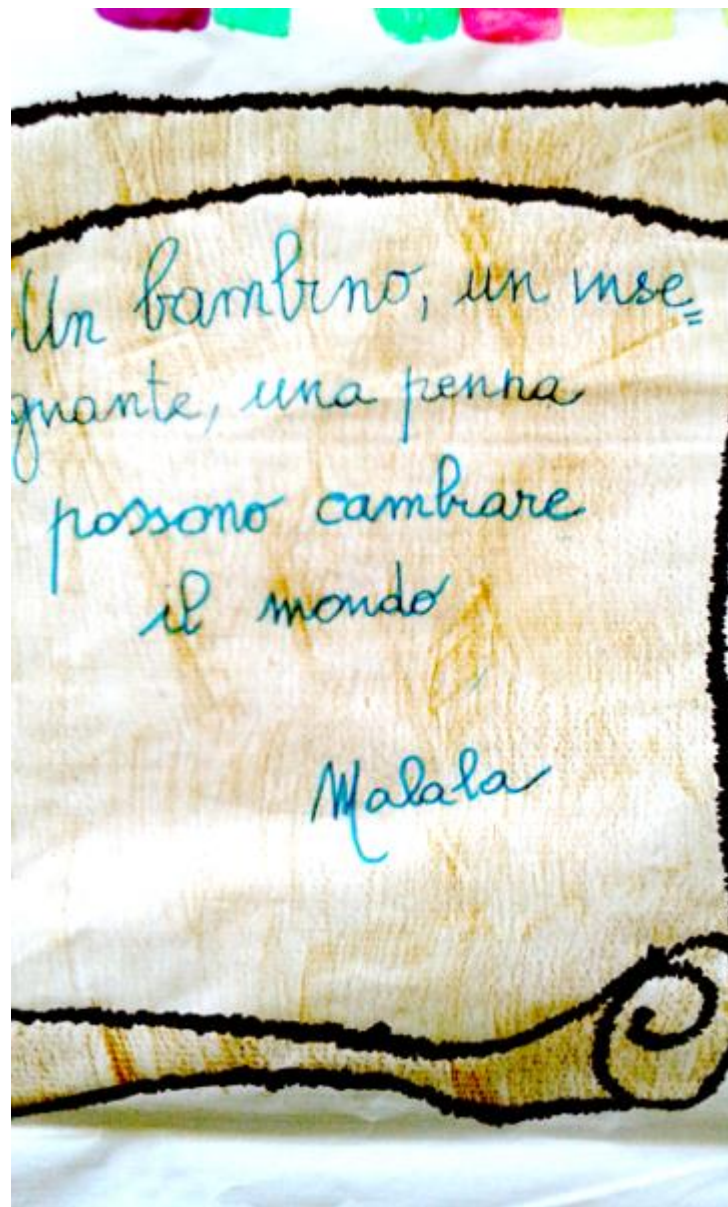 Un bambino, un inse=
gnante, una penna
possono cambiare
il mondo
Malala